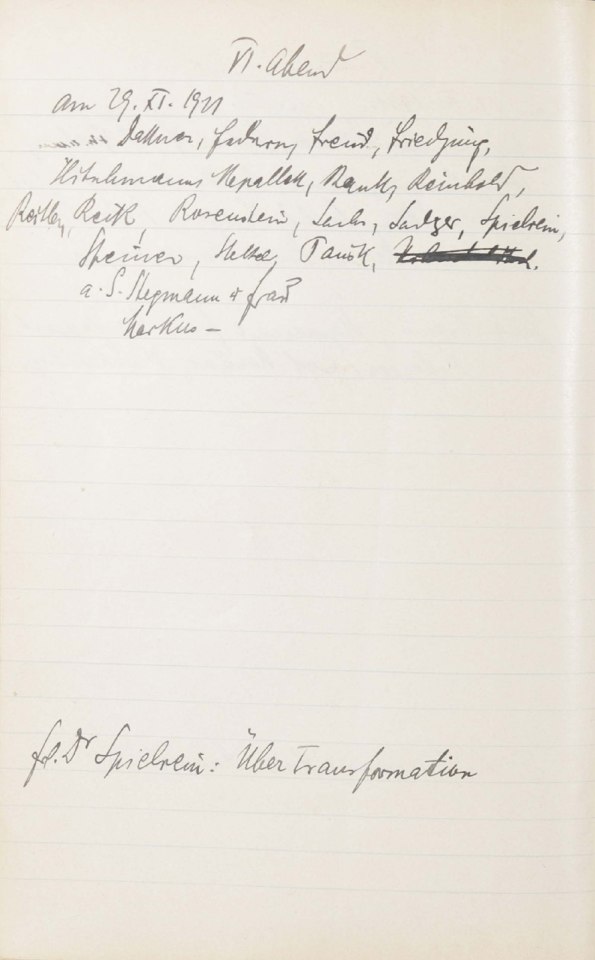 VI. Abend
am 29. XI. 1911
Dattner, Federn, Freud, Friedjung,
Hitschmann, Nepallek, Rank, Reinhold,
Reitler, Reik, Rosenstein, Sachs, Sadger, Spielrein,
Steiner, Stekel, Tausk,
a. G. Stegmann & Frau
Markus –
Frl. Dr Spielrein: Über Transformation